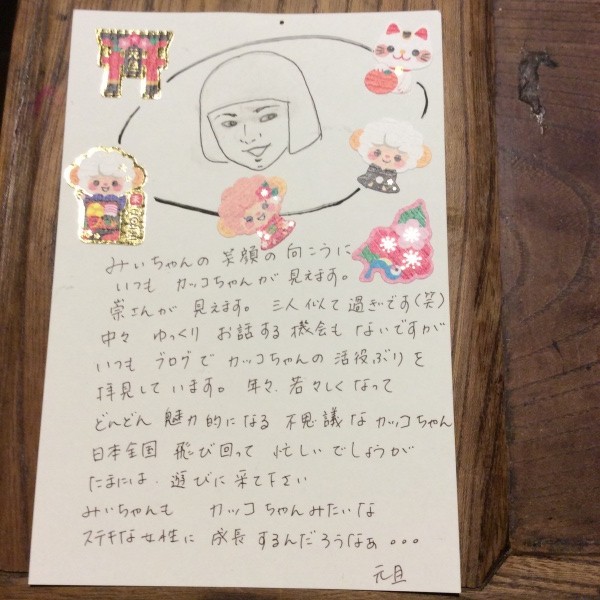 みいちゃんの 笑顔の向こうに
いつも カッコちゃんが見えます。
崇さんが 見えます。 三人似て過ぎです(笑)
中々 ゆっくり お話する機会も ないですが
いつも ブログで カッコちゃんの 活役ぶりを
拝見しています。 年々、若々しくなって
どんどん 魅力的になる 不思議なカッコちゃん
日本全国 飛び回って 忙しいでしょうが
たまには、遊びに来て下さい
みいちゃんも カッコちゃんみたいな
ステキな女性に 成長するんだろうなぁ 。。。
元旦